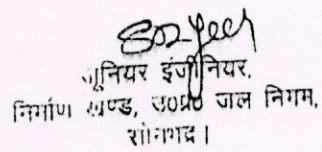 जूनियर इंजीनियर,
निर्माण खण्ड, उ०प्र० जल निगम,
सोनभद्र।